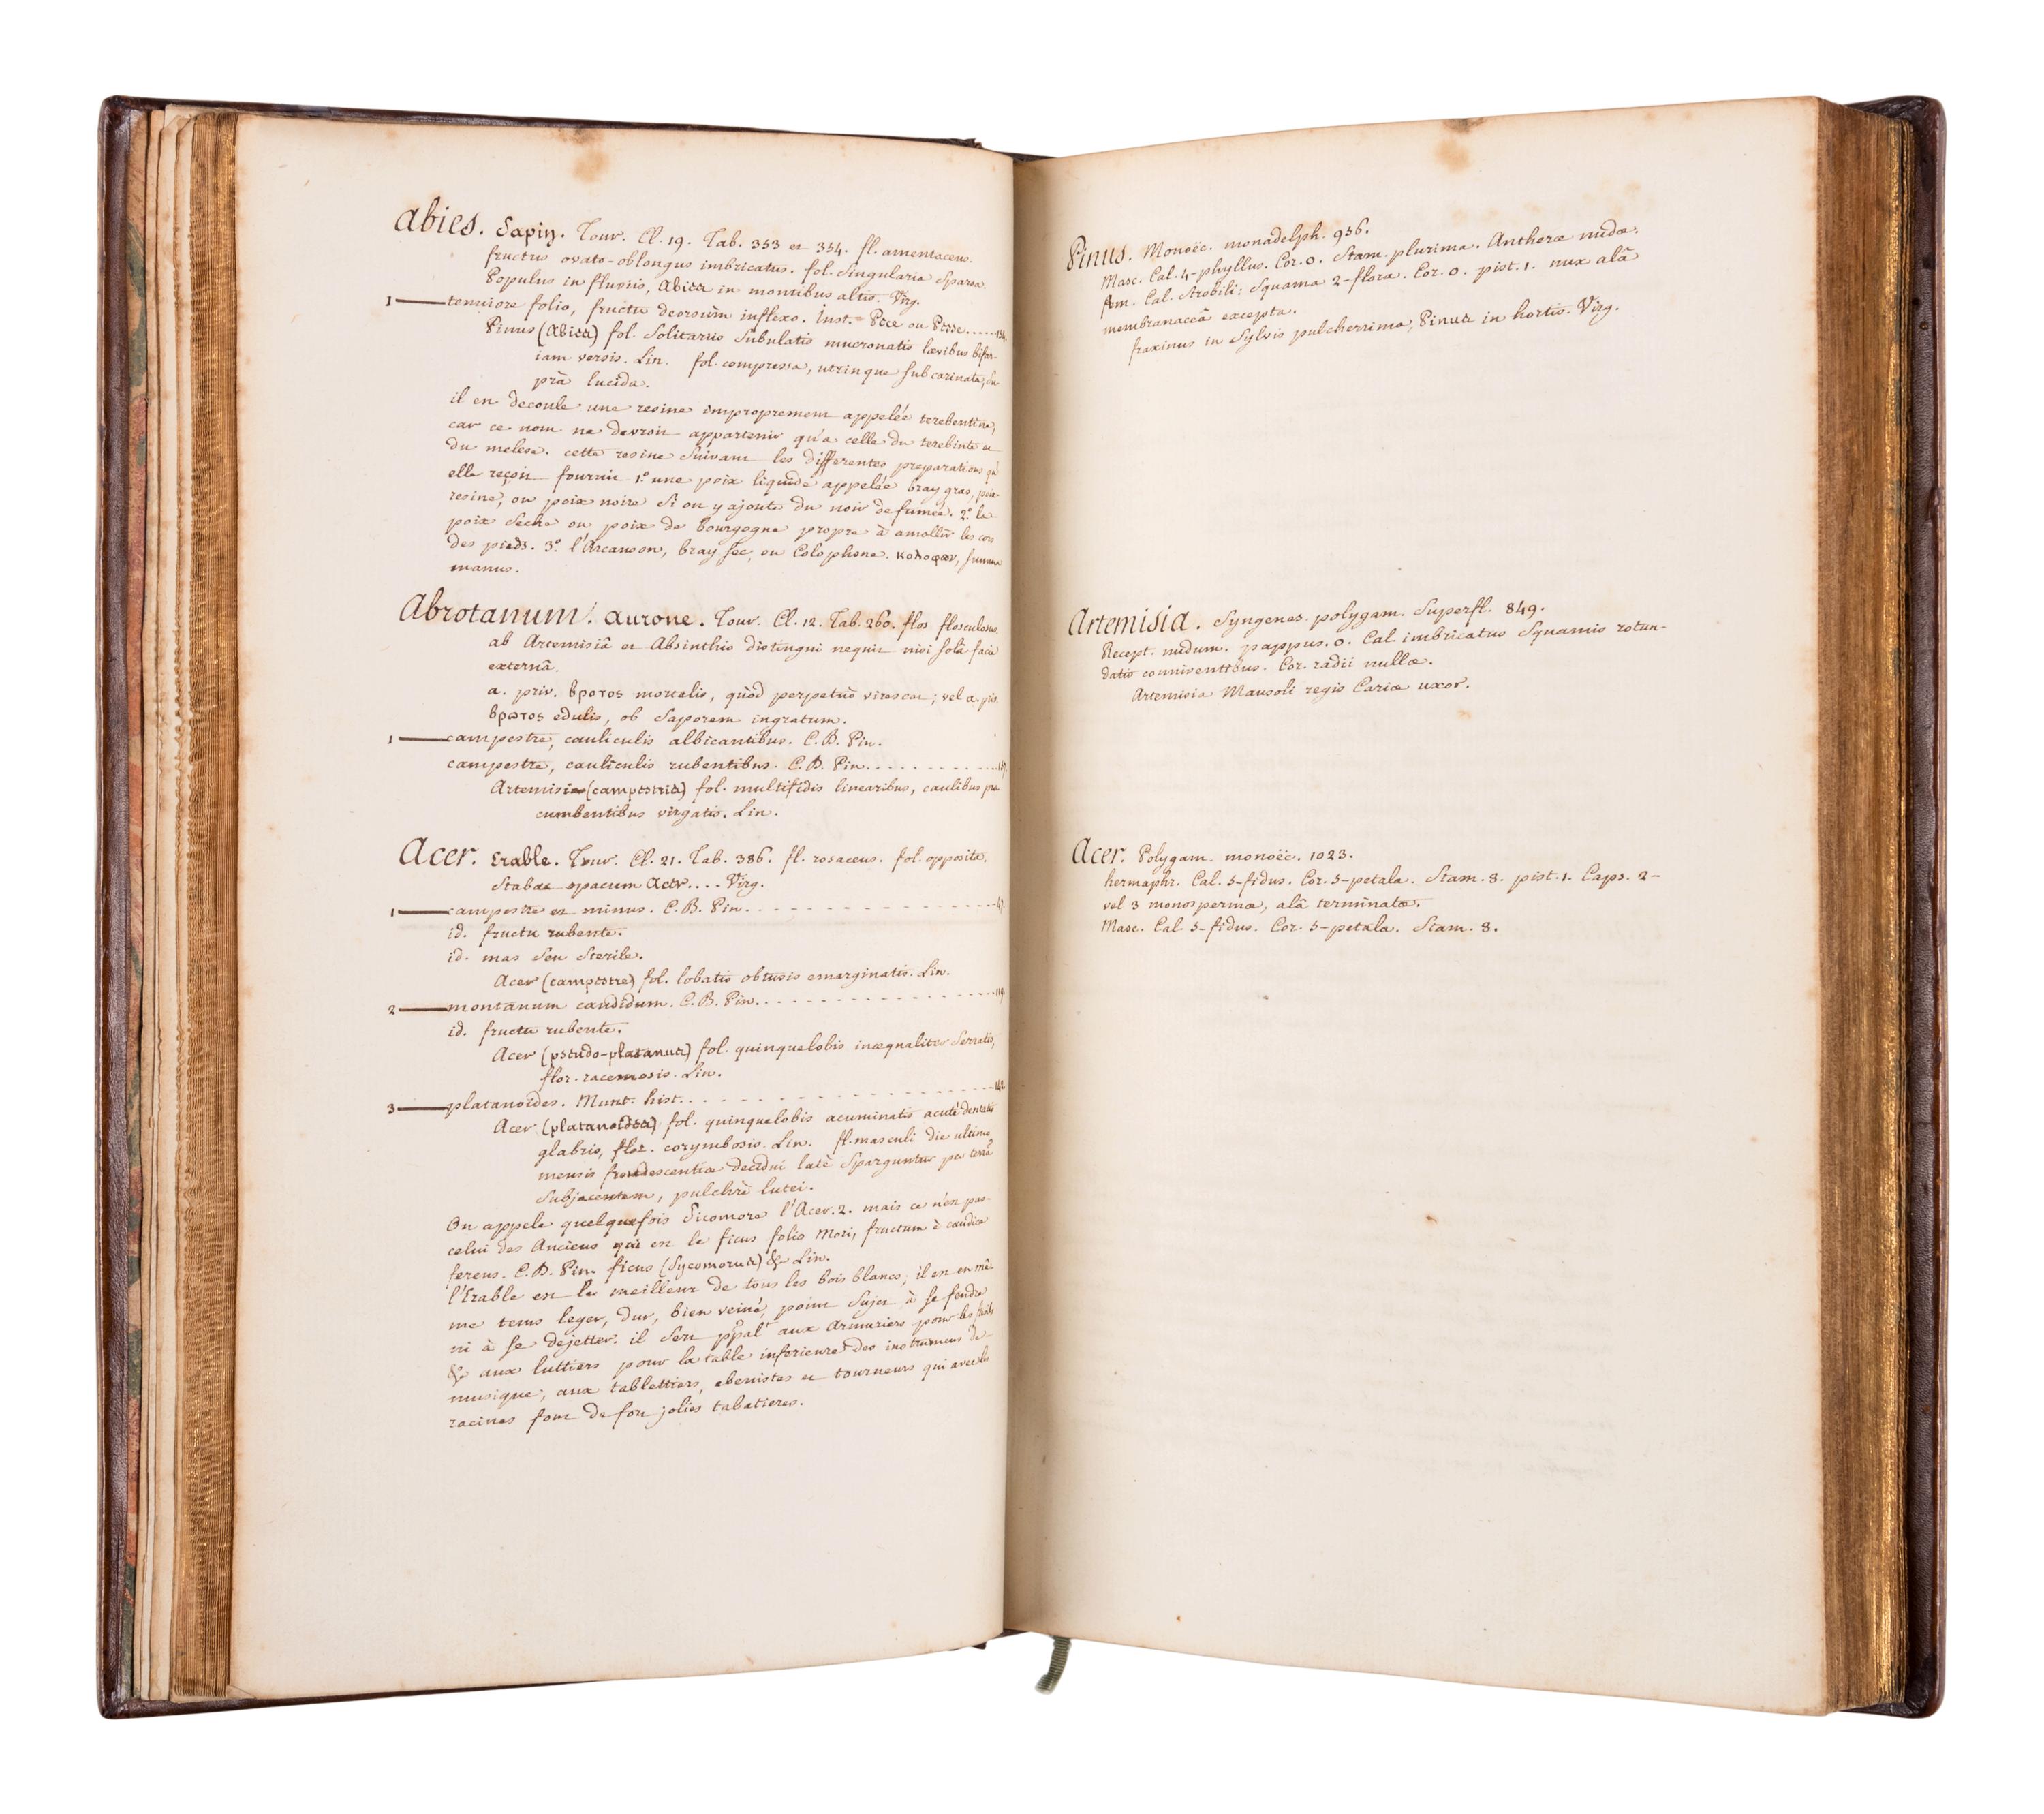 Abies. Sapin. Tour. Cl. 19. Tab. 353 et 354. fl. amentaceus.
fructus ovato-oblongus imbricatus. fol. singularia sparsa.
Populus in fluviis, Abies in montibus altis. Virg.
1 — tenuiore folio, fructu deorsùm inflexo. Inst. = Pece ou Pesse.....
Pinus (Abies) fol. solitariis subulatis mucronatis lævibus bifar-
iam versis. Lin. fol. compressa, utrinque subcarinata, su-
prà lucida.
il en decoule une resine improprement appelée terebentine,
car ce nom ne devroit appartenir qu'a celle du terebinte et
du melese. cette resine suivant les differentes preparations qu'
elle reçoit fournit 1.º une poix liquide appelée bray gras, poix-
resine, ou poix noire si on y ajoute du noir de fumée. 2.º la
poix seche ou poix de bourgogne propre à amollir les cors
des pieds. 3.º l'Arcanson, bray sec, ou Colophone. κολοφων, summa
manus.
Abrotanum. Aurone. Tour. Cl. 12. Tab. 260. flos flosculosus.
ab Artemisiâ et Absinthio distingui nequit nisi solâ facie
externâ.
a. priv. βροτος mortalis, quòd perpetuò virescat; vel a. priv.
βρωτος edulis, ob saporem ingratum.
1 — campestre, cauliculis albicantibus. C. B. Pin.
campestre, cauliculis rubentibus. C. B. Pin..........
Artemisia (campestris) fol. multifidis linearibus, caulibus pro-
cumbentibus virgatis. Lin.
Acer. Erable. Tour. Cl. 21. Tab. 386. fl. rosaceus. fol. opposita.
Stabat opacum Acer.... Virg.
1 — campestre et minus. C. B. Pin..........
id. fructu rubente.
id. mas seu sterile.
Acer (campestre) fol. lobatis obtusis emarginatis. Lin.
2 — montanum candidum. C. B. Pin..........
id. fructu rubente.
Acer (pseudo-platanus) fol. quinquelobis inæqualiter serratis,
flor. racemosis. Lin.
3 — platanoides. Munt. hist..........
Acer (platanoides) fol. quinquelobis acuminatis acutè dentatis
glabris, flor. corymbosis. Lin. fl. masculi die ultimo
mensis frondescentiæ decidui latè sparguntur per terrã
subjacentem, pulchrè lutei.
On appele quelquefois Sicomore l'Acer. 2. mais ce n'est pas
celui des Anciens qui est le ficus folio Mori, fructum è caudice
ferens. C. B. Pin. ficus (Sycomorus) & Lin.
l'Erable est le meilleur de tous les bois blancs; il est en mê-
me tems leger, dur, bien veiné, point sujet à se fendre
ni à se dejetter. il sert ppalt aux Armuriers pour les fusils
& aux luttiers pour la table inferieure des instrumens de
musique, aux tablettiers, ebenistes et tourneurs qui avec les
racines font de fort jolies tabatieres.
Pinus. Monoëc. monadelph. 956.
Masc. Cal. 4-phyllus. Cor. 0. Stam. plurima. Antheræ nudæ.
fem. Cal. Strobili: Squama 2-flora. Cor. 0. pist. 1. nux alâ
membranaceâ excepta.
fraxinus in Sylvis pulcherrima, Pinus in hortis. Virg.
Artemisia. Syngenes. polygam. Superfl. 849.
Recept. nudum. pappus. 0. Cal. imbricatus Squamis rotun-
datis conniventibus. Cor. radii nullæ.
Artemisia Mausoli regis Cariæ uxor.
Acer. Polygam. monoëc. 1023.
hermaphr. Cal. 5-fidus. Cor. 5-petala. Stam. 8. pist. 1. Caps. 2-
vel 3 monospermæ, alâ terminatæ.
Masc. Cal. 5-fidus. Cor. 5-petala. Stam. 8.